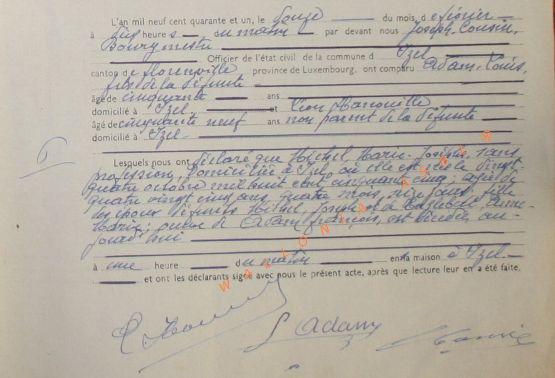 L'an mil neuf cent quarante et un, le douze du mois de février
à dix heures du matin par devant nous Joseph Cousin,
Bourgmestre
Officier de l'état civil de la commune d Izel
canton de Florenville province de Luxembourg, ont comparu Adam, Louis,
fils de la défunte
âgé de cinquante ans
domicilié à Izel et Léon
âgé de cinquante neuf ans non parent de la défunte
domicilié à Izel
6
Lesquels nous ont déclaré que Michel Marie-Josèphe, sans
profession, domiciliée à Izel où elle est née le vingt
quatre octobre mil huit cent cinquante cinq, âgée de
quatre vingt cinq ans, quatre mois dix jours, fille
des époux défunts Michel, Joseph et de Anne-
Marie; veuve de Adam, François, est décédée au-
jourd'hui
à une heure du matin en sa maison à Izel
et ont les déclarants signé avec nous le présent acte, après que lecture leur en a été faite.
L Adam